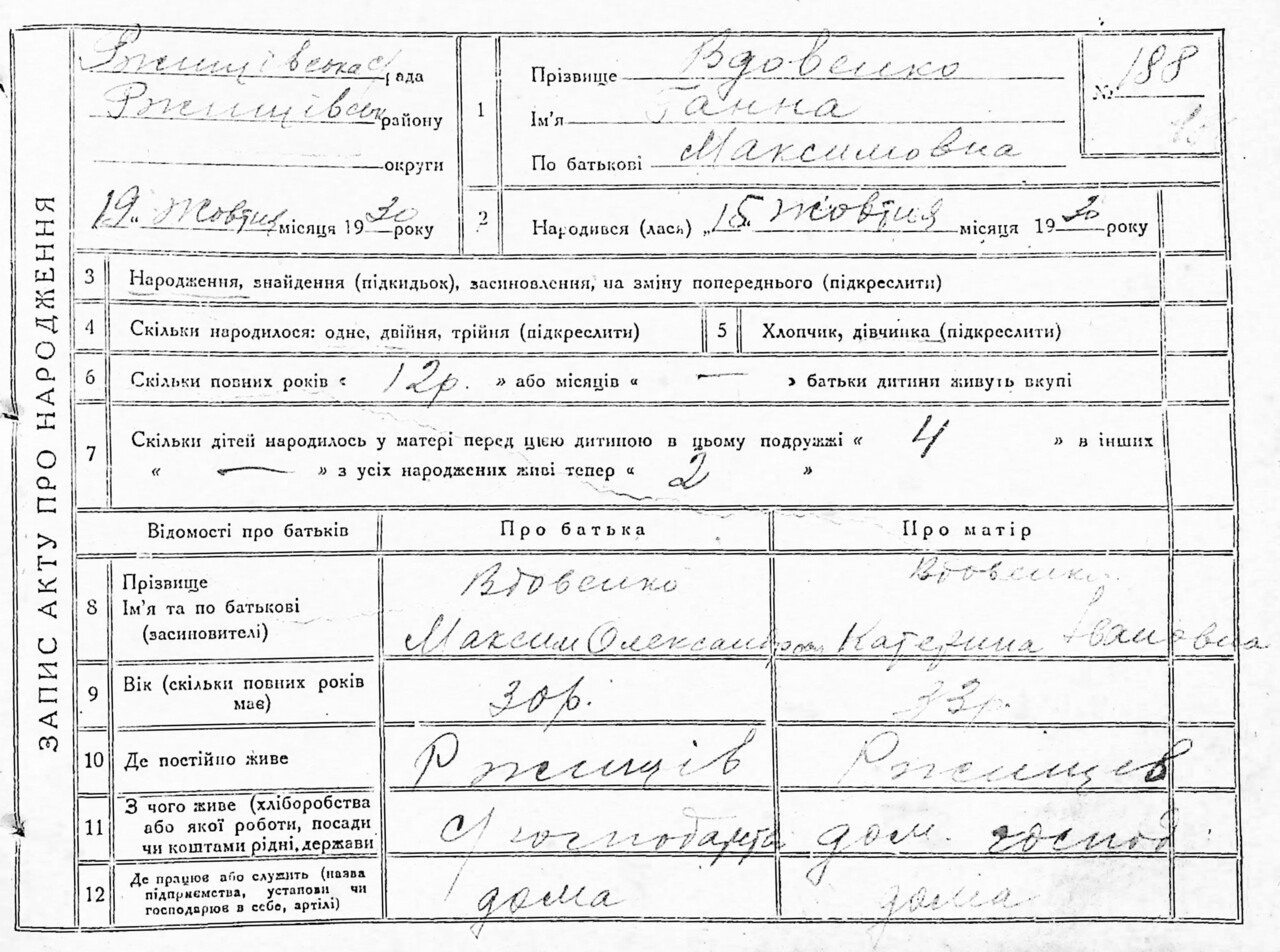 ЗАПИС АКТУ ПРО НАРОДЖЕННЯ
Ржищівська с/рада
Ржищівськ району
округи
19 „ Жовтня місяця 1930 року
1
Прізвище Вдовенко
Ім'я Ганна
По батькові Максимовна
№ 188
2
Народився (лась) „15“ Жовтня місяця 1930 року
3 Народження, знайдення (підкидьок), засиновлення, на зміну попереднього (підкреслити)
4 Скільки народилося: одне, двійня, трійня (підкреслити)
5 Хлопчик, дівчинка (підкреслити)
6 Скільки повних років « 12р. » або місяців « — » батьки дитини живуть вкупі
7 Скільки дітей народилось у матері перед цією дитиною в цьому подружжі « 4 » в інших
« — » з усіх народжених живі тепер « 2 »
Відомості про батьків
Про батька
Про матір
8 Прізвище
Ім'я та по батькові
(засиновителі)
Вдовенко
Максим Олександров
Вдовенко
Катерина Івановна
9 Вік (скільки повних років
має)
30р.
33р.
10 Де постійно живе
Ржищів
Ржищев
11 З чого живе (хліборобства
або якої роботи, посади
чи коштами рідні, держави
с/господарства
дом. господ.
12 Де працює або служить (назва
підприємства, установи чи
господарює в себе, артілі)
дома
дома